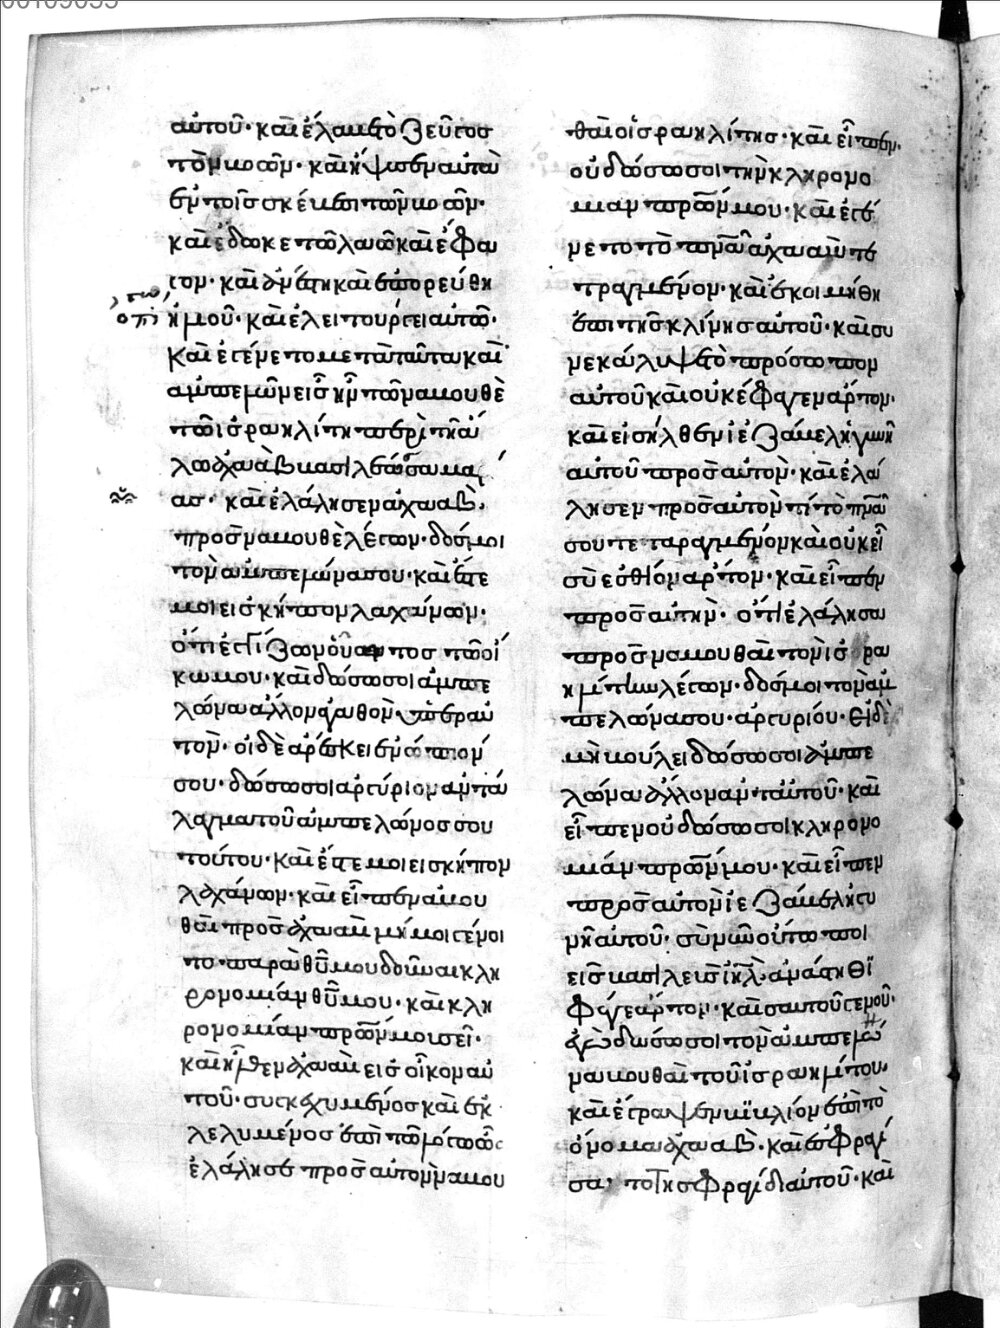 αὐτοῦ· καὶ ἔλαβε τὸ ζεῦγος
τῶν βοῶν· καὶ ἥψησεν αὐτὰ
ἐν τοῖς σκέυεσι τῶν βοῶν·
καὶ ἔδωκε τῶ λαῶ καὶ ἔφα
γον· καὶ ἀνέστη καὶ ἐπορεύθη
ὀπίσω ἠλιοῦ· καὶ ἐλειτούργει αὐτῶ·
Καὶ ἐγένετο μετὰ ταῦτα καὶ
ἀμπελὼν εἷς ἦν τῶ ναβουθὲ
τῶ ἰσραηλίτη παρὰ τῆ ἅ
λω ἀχαὰβ βασιλέως σαμα
ας· καὶ ἐλάλησεν ἀχαὰβ
πρὸς ναβουθὲ λέγων· δός μοι
τὸν ἀμπελῶνα σου· καὶ ἔσται
μοι εἰς κῆπον λαχάνων·
ὅτι ἐγγίζων οὗτος τῶ οἴ
κω μου· καὶ δώσω σοι ἀμπε
λῶνα ἄλλον ἀγαθὸν ὑπὲρ αὐ
τόν· εἰ δὲ ἀρέσκει ἐνώπιόν
σου· δώσω σοι ἀργύριον ἀντά
λαγμα τοῦ ἀμπελῶνος σου
τούτου· καὶ ἔσται μοι εἰς κῆπον
λαχάνων· καὶ εἶπεν ναβου
θαὶ πρὸς ἀχαάβ μή μοι γένοι
το παρὰ θῦ μου δοῦναι κλη
ρονομίαν θῦ μου· καὶ κλη
ρονομίαν πρῶν μου σοι·
καὶ ἦλθεν ἀχαὰβ εἰς οἶκον αὐ
τοῦ· συγκεχυμένος καὶ ἐκ
λελυμένος ἐπὶ τῶ λόγω ὡς
ἐλάλησε πρὸς αὐτὸν ναβου
θαὶ ὁ ἰσραηλίτης· καὶ εἶπεν·
οὐ δώσω σοι τὴν κληρονο
μίαν πρῶν μου· καὶ ἐγέ
νετο τὸ πνᾶ ἀχαὰβ τε
ταραγμένον· καὶ ἐκοιμήθη
ἐπὶ τῆς κλίνης αὐτοῦ· καὶ συ
νεκάλυψε τὸ πρόσωπον
αὐτοῦ καὶ οὐκ ἔφαγεν ἄρτον·
καὶ εἰσῆλθεν ἰεζάβελ ἡ γυνὴ
αὐτοῦ πρὸς αὐτὸν· καὶ ἐλά
λησεν πρὸς αὐτὸν τί τὸ πνᾶ
σου τεταραγμένον καὶ οὐκ εἶ
σὺ ἐσθίον ἄρτον· καὶ εἶπεν
πρὸς αὐτὴν· ὅτι ἐλάλησα
πρὸς ναβουθαὶ τὸν ἰσραη
λίτην λέγων· δός μοι τὸν ἀμ
πελῶνα σου· ἀργυρίου· εἰ δὲ
μὴ βούλει δώσω σοι ἀμπε
λῶνα ἄλλον ἀντ' αὐτοῦ· καὶ
εἶπεν οὐ δώσω σοι κληρονο
μίαν πρῶν μου· καὶ εἶπεν
πρὸς αὐτὸν ἰεζάβελ ἡ γυ
νὴ αὐτοῦ· σὺ νῦν οὕτω ποι
εῖς βασιλεὺς ἰῆλ· ἀνάστηθι
φάγε ἄρτον· καὶ σαυτοῦ γενοῦ·
ἐγὼ δώσω σοι τὸν ἀμπελῶ
ναβουθαὶ τοῦ ἰσραηλίτου·
καὶ ἔγραψεν βιβλίον ἐπὶ τὸ
ὄνομα ἀχαάβ· καὶ ἐσφραγί
σατο τῆ σφραγίδι αὐτοῦ· καὶ